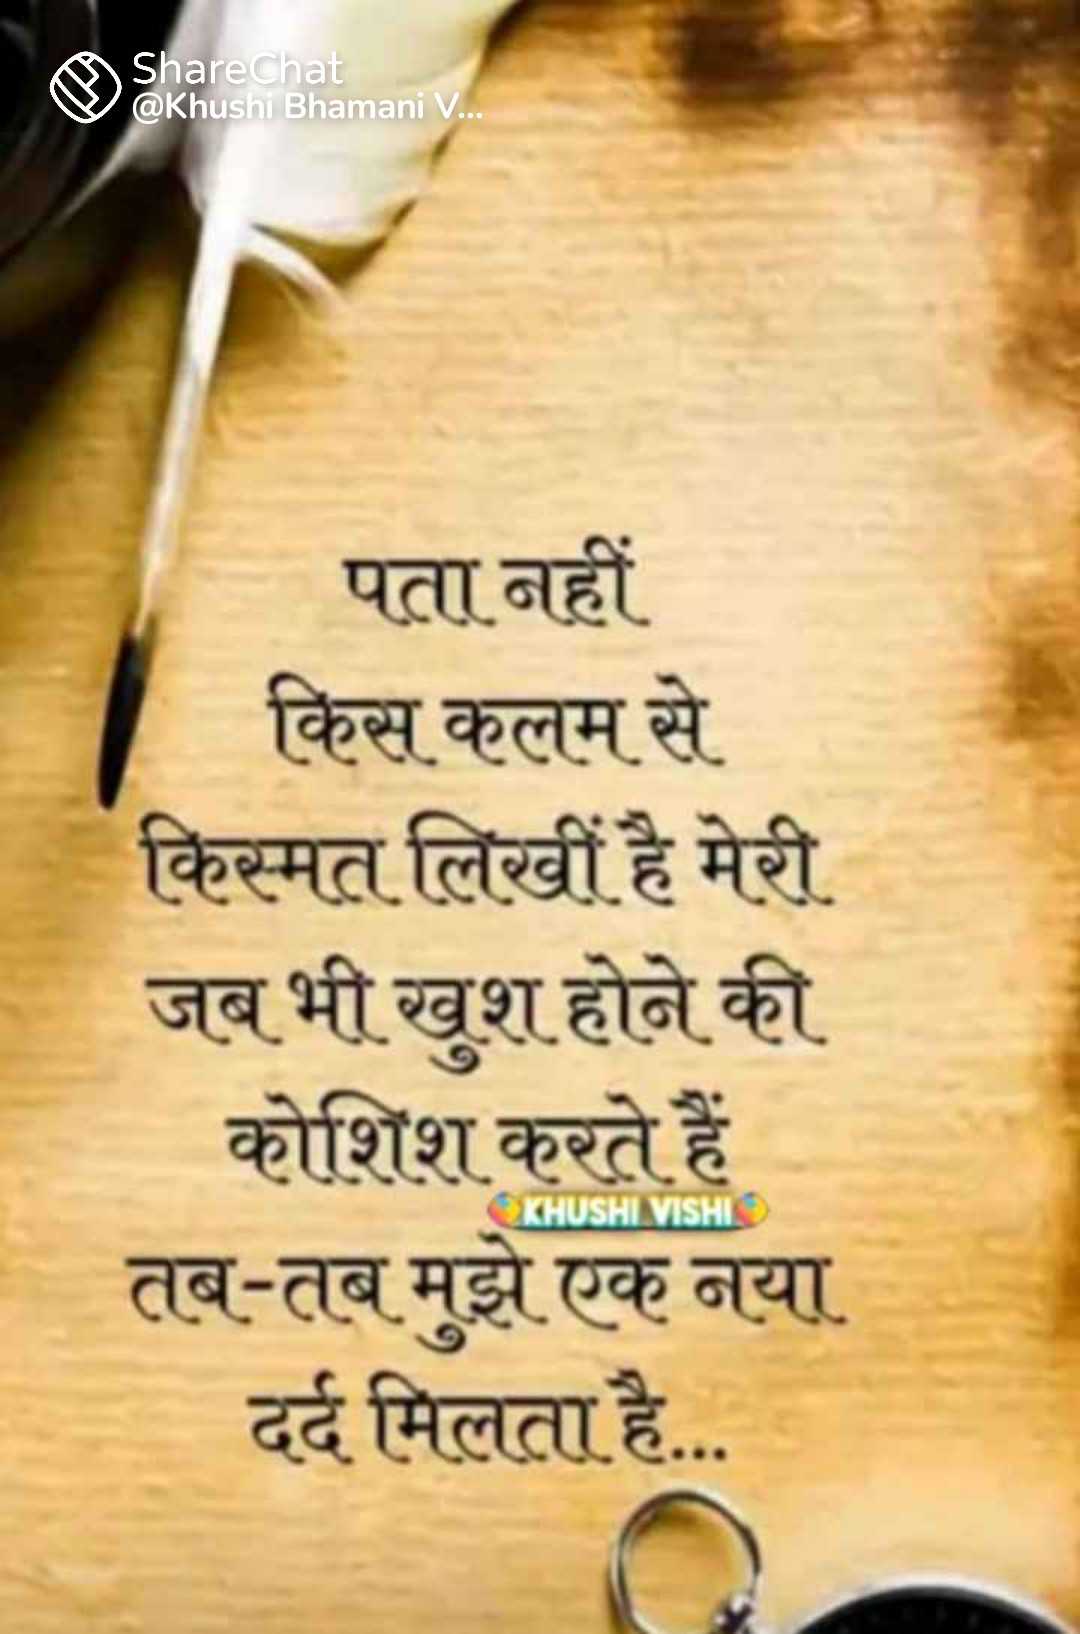 ShareChat
@Khushi Bhamani V...
पता नहीं
किस कलम से
किस्मत लिखीं है मेरी
जब भी खुश होने की
कोशिश करते हैं
KHUSHI VISHI
तब-तब मुझे एक नया
दर्द मिलता है...